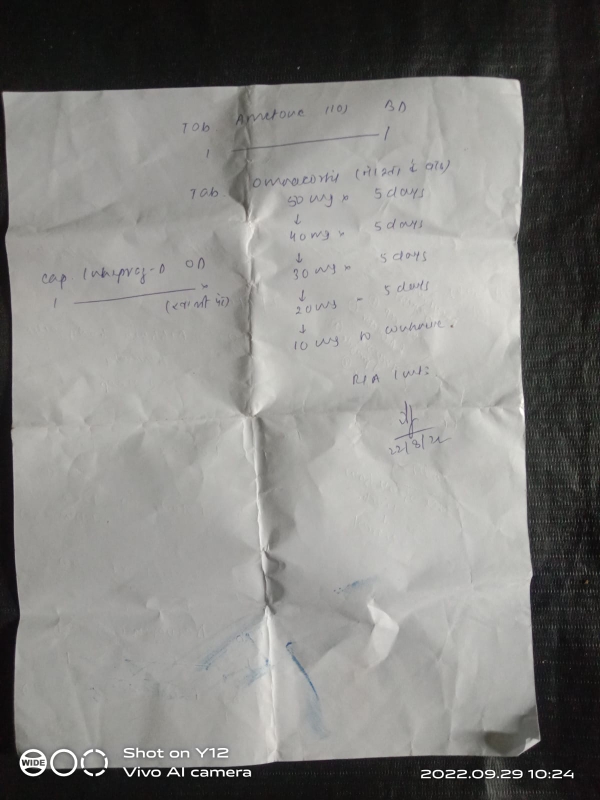 Tab. BD
1 ——— 1
Tab. omnacortil
50 mg x 5 days
↓
40 mg x 5 days
↓
30 mg x 5 days
↓
20 mg - 5 days
↓
10 mg to continue.
Cap. OD
1 ———
R/A 1 mt:
22/8/22
WIDE
Shot on Y12
Vivo AI camera
2022.09.29 10:24